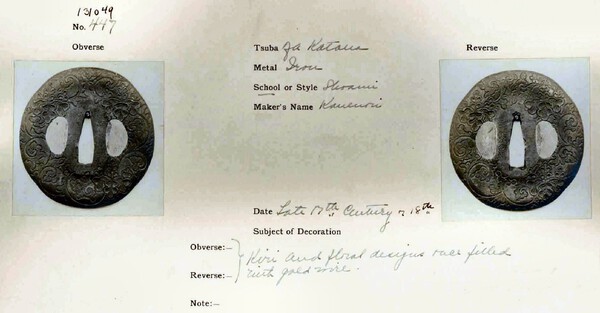 131049
No. 447
Obverse
Reverse
Tsuba Za Katana
Metal Iron
School or Style Shoami
Maker's Name Kanenori
Date Late 17th Century or 18th
Subject of Decoration
Obverse:—
Kiri and floral designs once filled
Reverse:—
with gold wire.
Note:—